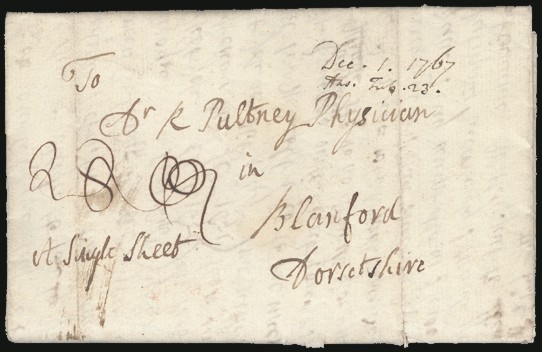 Dec. 1. 1767
Ans. Feb. 23.
To
Dr R Pultney Physician
in
Blanford
Dorsetshire
A Single Sheet